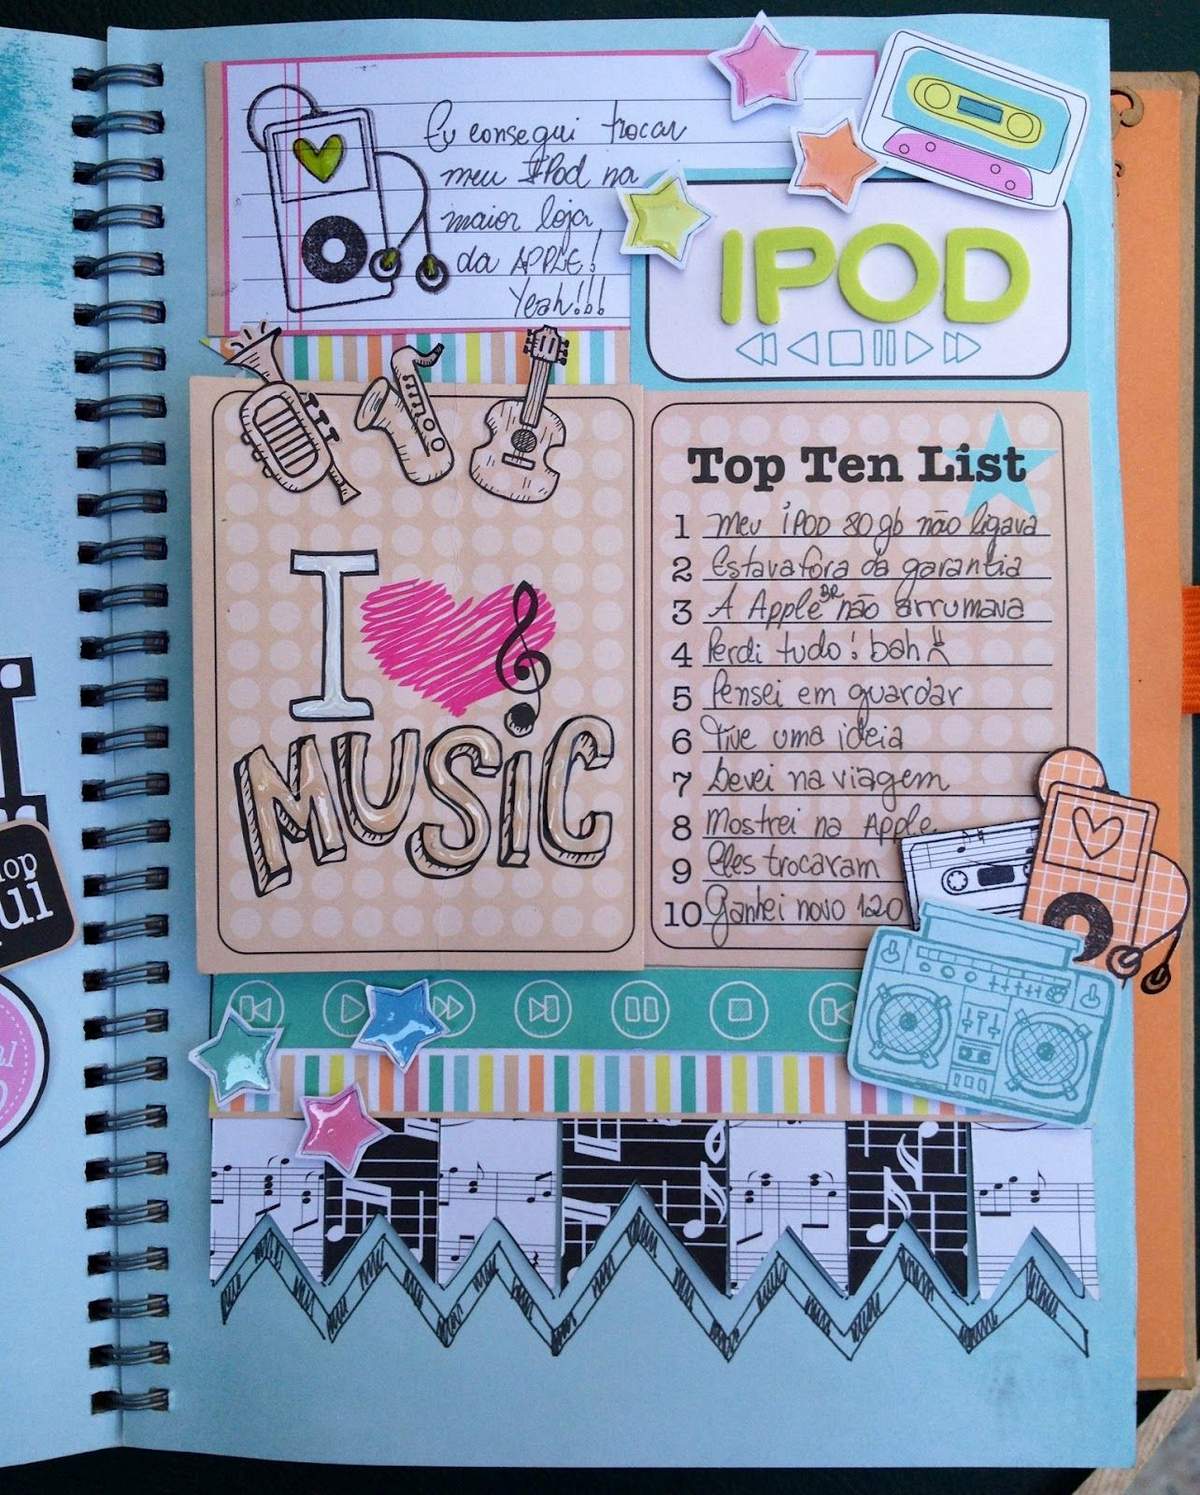 Eu consegui trocar
meu IPod na
maior loja
da APPLE!
Yeah!!!
IPOD
I
MUSiC
Top Ten List
1 Meu iPOD 80 gb não ligava
2 Estava fora da garantia
3 A Apple BR não arrumava
4 Perdi tudo! bah
5 Pensei em guardar
6 Tive uma ideia
7 Levei na viagem
8 Mostrei na Apple
9 Eles trocaram
10 Ganhei novo 120